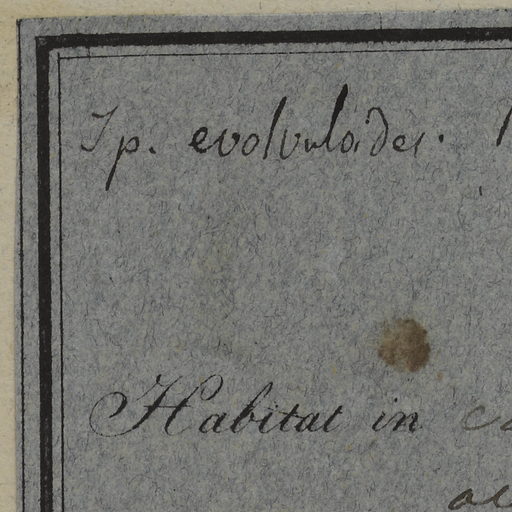 Ip. evolvuloides.
Habitat in